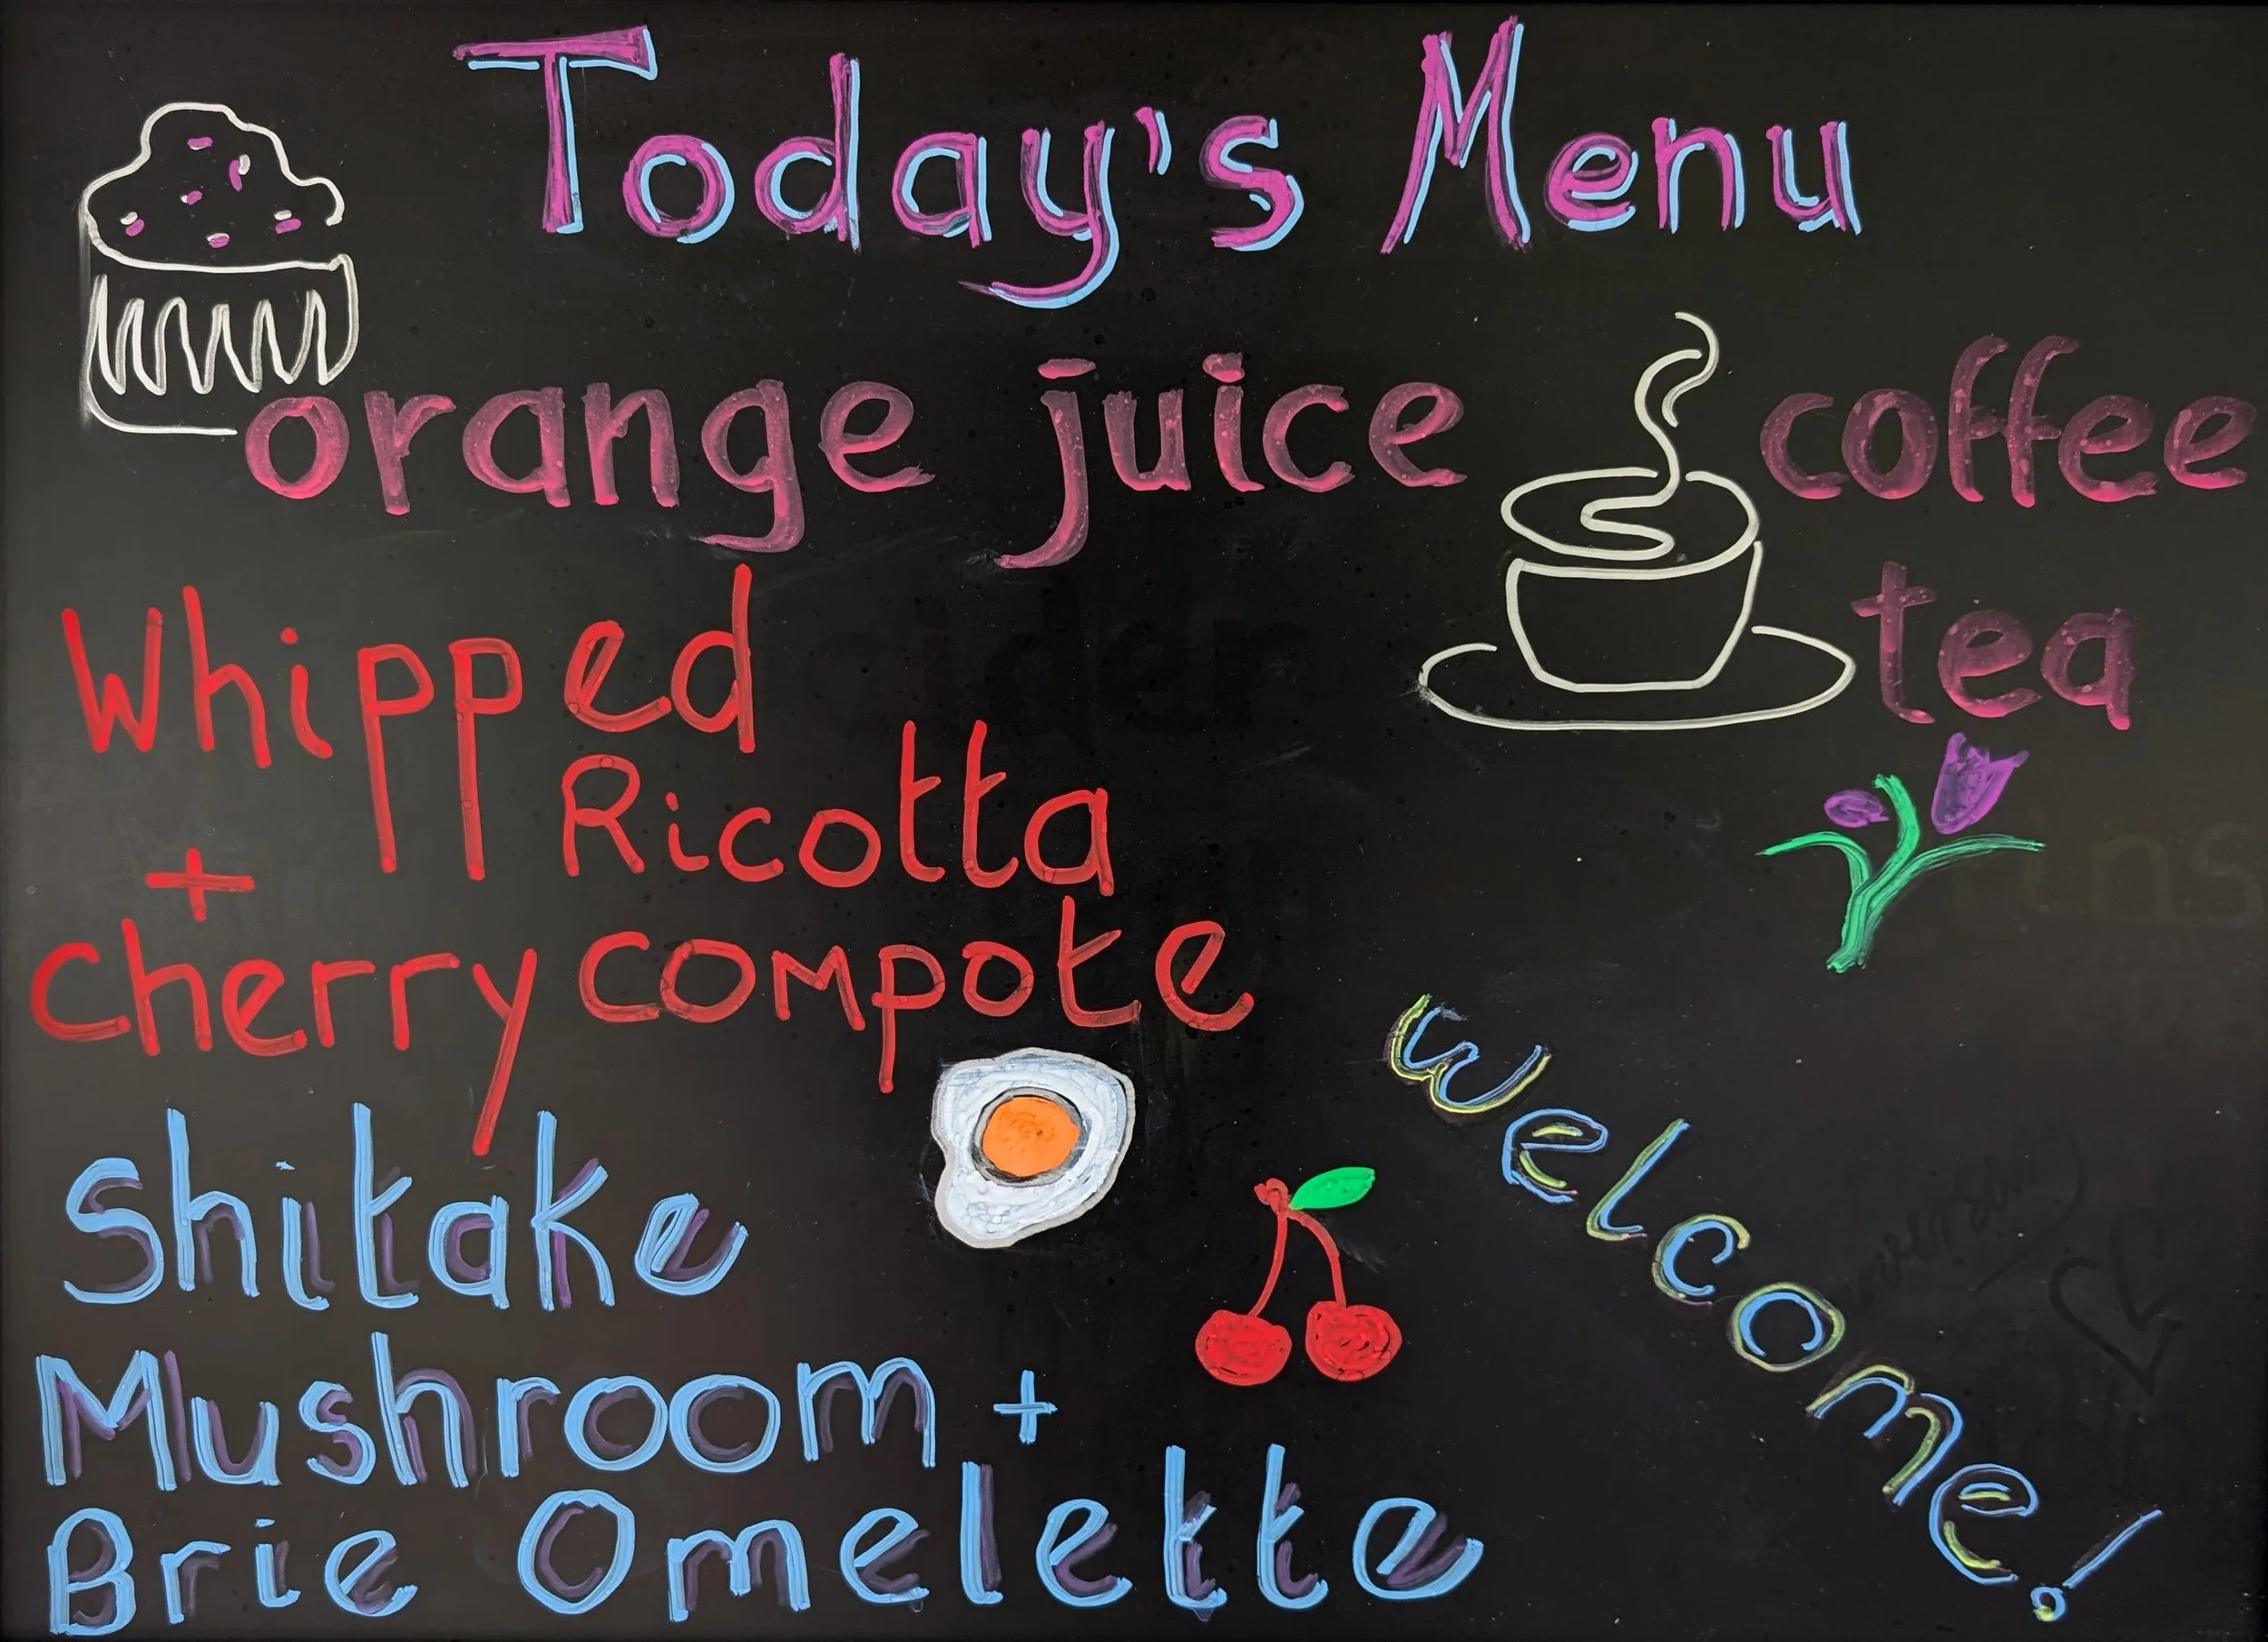 Today's Menu
orange juice
coffee
tea
Whipped
Ricotta
+
cherry compote
Shitake
Mushroom +
Brie Omelette
welcome!